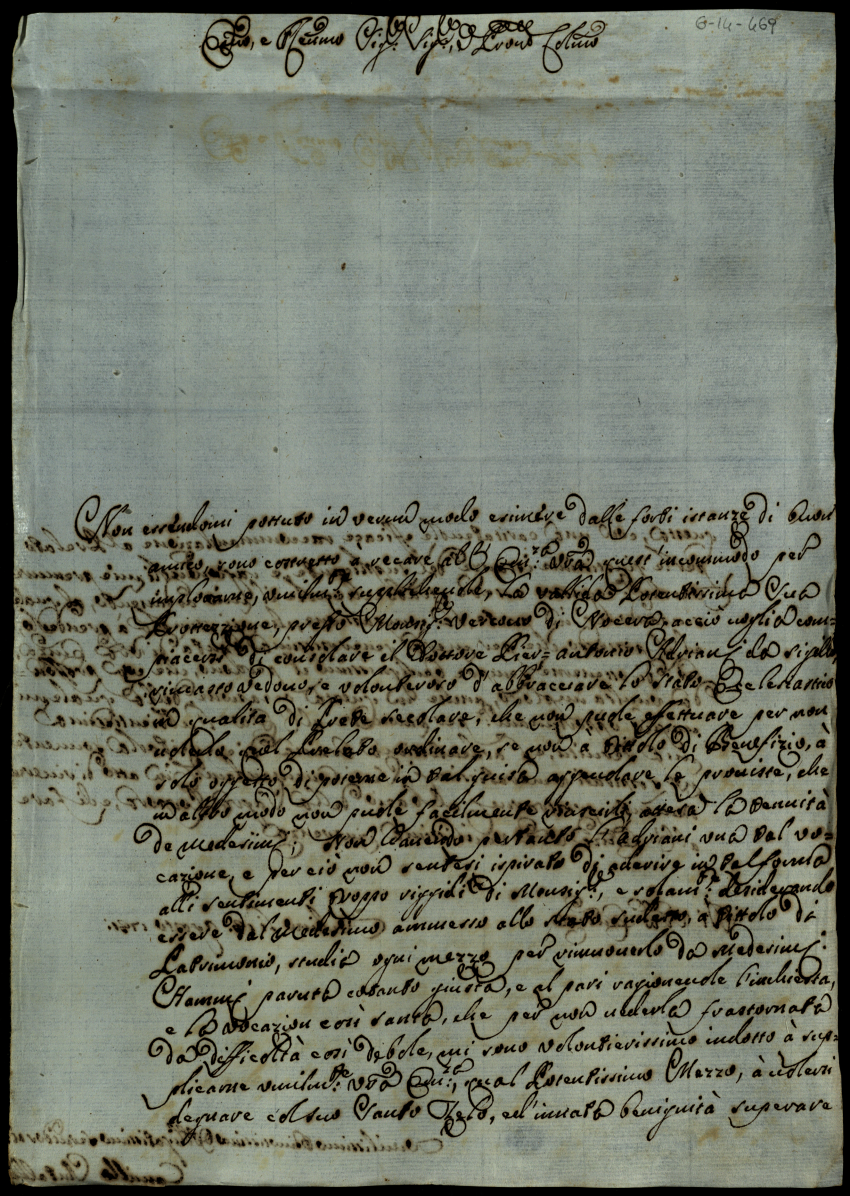 G-14-469
Emo, e Rmo Sig.r Sig.r, e Pron Colmo
Non essendomi potuto in verun modo esimere dalle forti istanze di buon
amico, sono costretto a recare all' Em.za Vra quest' incommodo per
implorarne, umilm.te supplichevole, la valida Potentissima Sua
Protezzione, presso Monsig.r Vescovo di Nocera, acciò voglia com-
piacersi di consolare il Dottore Pier= Antonio Adriani da Sigillo,
rimasto vedovo, e volonteroso d'abbracciare lo stato Ecclesiastico
in qualità di Prete secolare, che non puole effettuare per non
volerlo quel Prelato ordinare, se non à tittolo di Benefizio, à
solo oggetto di poterne in tal guisa appoggiare le provisse, che
in altro modo non puole facilmente riuscirli attesa la tenuità
de Medesimi; Non havendo pertanto l'Adriani una tal vo-
cazione, e perciò non sentesi ispirato di aderire in tal forma
alli sentimenti troppo riggidi di Monsig.r, e solam.te desiderando
essere dal Medesimo ammesso allo stato sudetto, à tittolo di
Patrimonio, studia ogni mezzo per rimmoverlo da Medesimi.
Hammi paruta cotanto giusta, e al pari ragionevole l'inchiesta,
e la vocazion così santa, che per non vederla frastornata
da difficoltà così debole, mi sono volontierissimo indotto à sup-
plicarne umilm.te Vra Em.za, qual Potentissimo Mezzo, à volersi
degnare col suo Santo Zelo, ed innata benignità superare